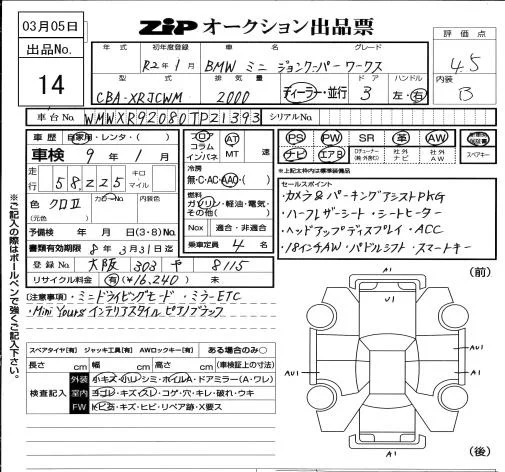 03月05日
ZiP オークション出品票
評価点
4.5
内装
B
出品No.
14
年式
初年度登録
車名
グレード
R2年1月
BMW ミニ ジョンクーパーワークス
型式
排気量
ドア
ハンドル
CBA-XRJCWM
2000
ディーラー・並行
3
左・右
車台No.
WMWXR92080TP21393
シリアルNo.
車歴
自家用・レンタ・( )
車検
9年1月
走行
58,225
キロ
マイル
色
クロⅡ
カラーNo.
内装色
(元色 )
予備検 年 月 日(3・8)No.
書類有効期限 8年3月31日迄
登録No.
大阪 303 や 8115
リサイクル料金
有(¥16,240) 未
フロア
コラム
インパネ
AT
MT
速
冷房
無・C・AC・AAC・( )
燃料
ガソリン・軽油・電気・
その他( )
Nox 適合・非適合
乗車定員 4 名
PS
PW
SR
革
AW
ナビ
エアB
社外ナビ
社外AW
スペアキー
※上記太枠内は標準装備品
セールスポイント
・カメラ&パーキングアシストPKG
・ハーフレザーシート・シートヒーター
・ヘッドアップディスプレイ・ACC
・18インチAW・パドルシフト・スマートキー
[注意事項]・ミニドライビングモード・ミラーETC
・Mini Yours インテリアスタイル ピアノブラック
スペアタイヤ[有] ジャッキ工具[有] AWロックキー[有] ある場合のみ○
長さ cm 幅 cm 高さ cm (車検証上の寸法)
検査記入
外装 小キズ・小U・シミ・ホイルA・ドアミラー(A・ワレ)
室内 ヨゴレ・キズ・スレ・コゲ・穴・キレ・破れ・ウキ
FW トビ石・キズ・ヒビ・リペア跡・X要ス
※ご記入の際はボールペンで強くご記入下さい。
(前)
A1
U1
AU1
AU1
A1
A1
(後)